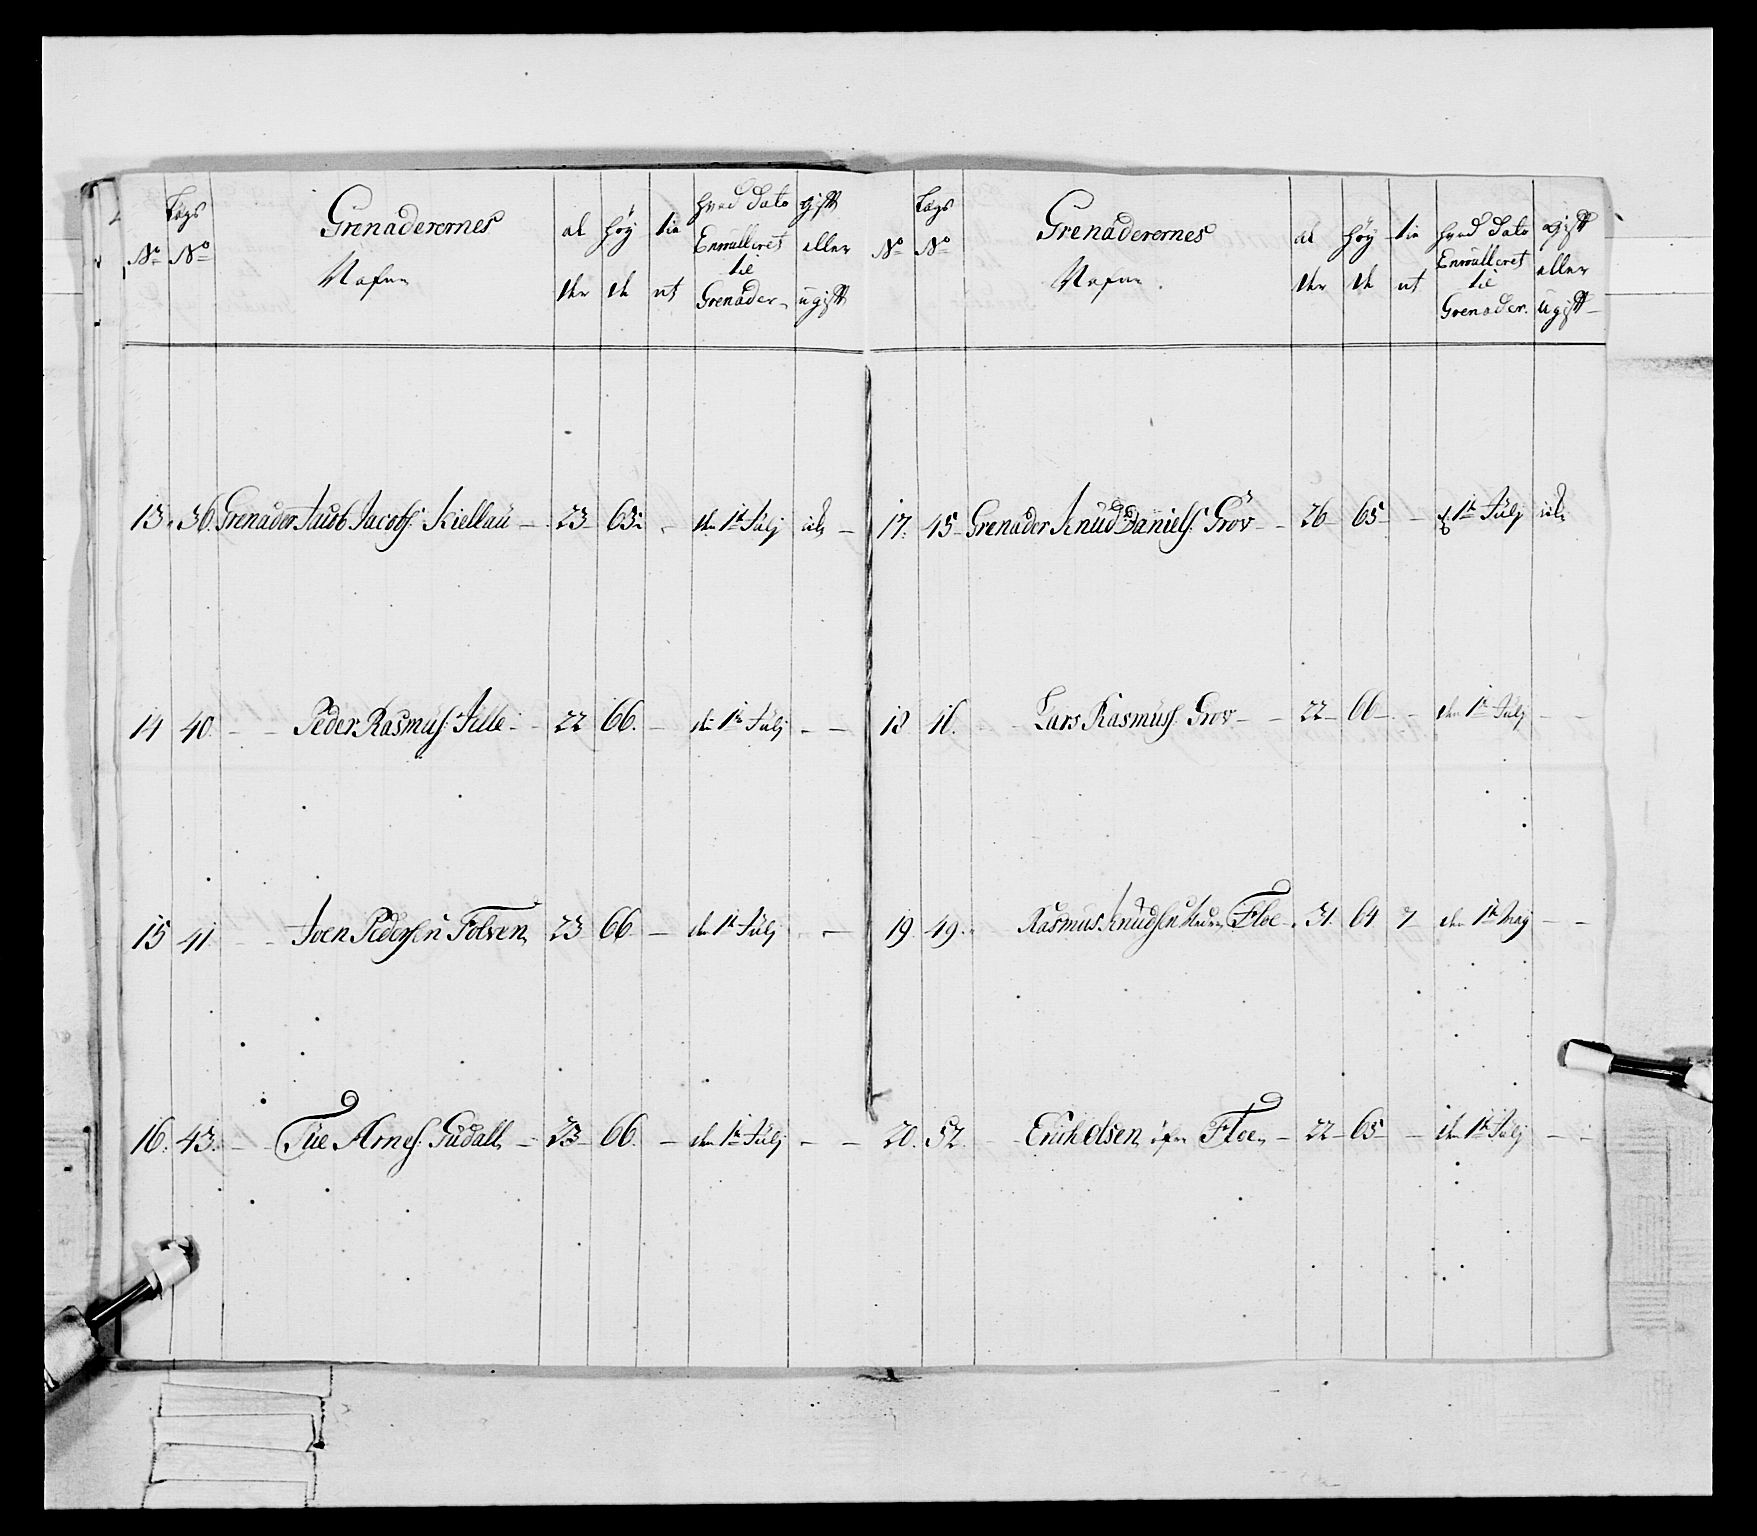 No Lægs No Grenaderernes Nafne al der høy de tie nt hved Dato Enroulleret til Grenader gift eller ugift
13. 36. Grenader Jacob Jacobs: Kiellau 23 63½ den 1te Julj
14 40. Peder Rasmus: Jille 22 66. den 1te Julj
15 41. Iven Pedersen Folven 23 66 den 1te Julj
16. 43. Tue Arnes: Gudall 23 66. den 1te Julj
No Lægs No Grenaderernes Nafne al der høy de tie nt hved Dato Enroulleret til Grenader. gift eller ugift
17. 45 Grenader Knud Daniels: Grov 26 65 1te Julj
18 46. Lars Rasmuss: Grov 22 66 den 1te Julj
19. 49. Rasmus Knudsen Floe 31. 64 7 den 1te May
20. 52. Erich Olsen Floe 22 65 den 1te Julj